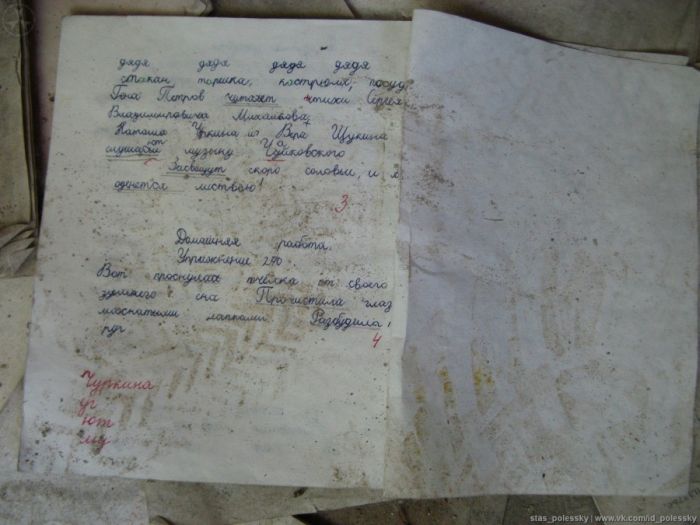 дядя дядя дядя дядя
стакан тарелка, кастрюля, посуд
Гоча Петров читает стихи Сергея
Владимировича Михалкова
Наташа Чркина и Вера Щукина
слушают музыку Чайковского
Засвищут скоро соловьи, и л
оденется листвою!
3
Домашняя работа.
Упражнение 290
Вот проснулась пчёлка от своего
зимнего сна Прочистила глаз
мохнатыми лапками. Разбудила
4
Чуркина
уг
ют
му
stas_polessky | www.vk.com/id_polessky